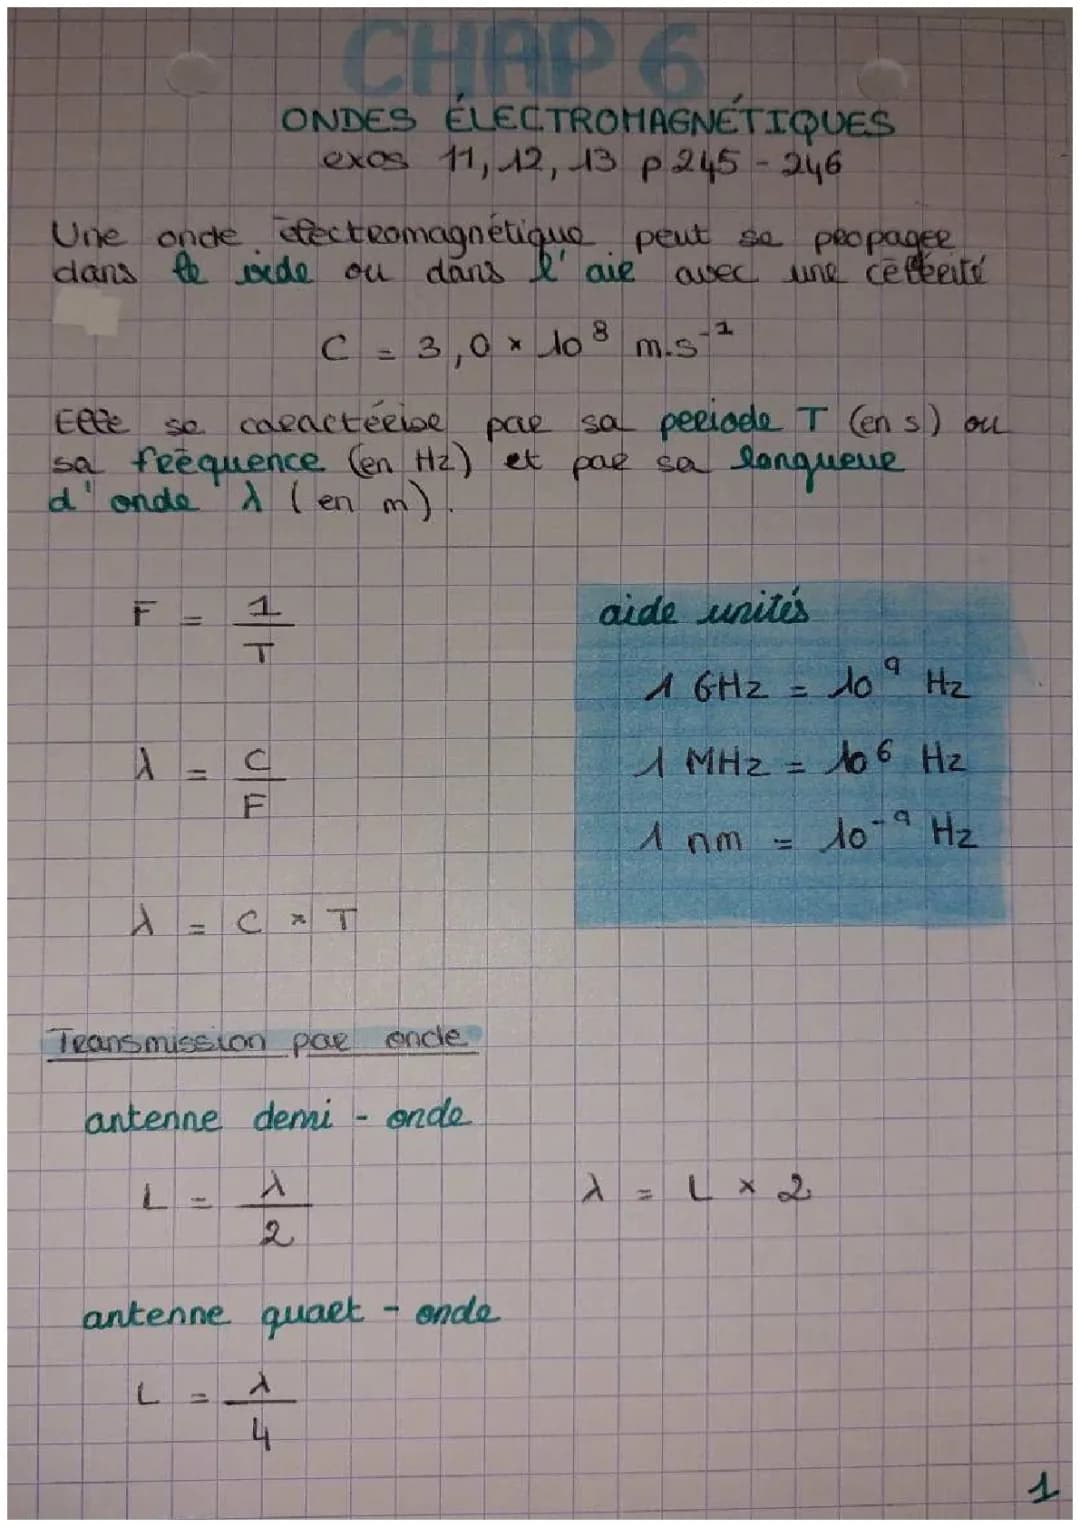 CHAP 6
ONDES ÉLECTROMAGNÉTIQUES
exos 11, 12, 13 p 245 - 246
Une onde électromagnétique peut se propager
dans le vide ou dans l'air avec une célérité
C = 3,0 × 10⁸ m.s⁻¹
Elle se caractérise par sa periode T (en s) ou
sa fréquence (en Hz) et par sa longueur
d'onde λ (en m).
F = 1/T
λ = C/F
λ = C × T
aide unités
1 GHz = 10⁹ Hz
1 MHz = 10⁶ Hz
1 nm = 10⁻⁹ Hz
Transmission par onde
antenne demi - onde
L = λ/2
λ = L × 2
antenne quart - onde
L = λ/4
1